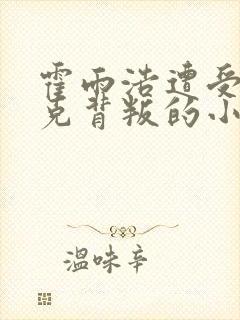 霍雨浩遭受
克背叛的小
温味辛